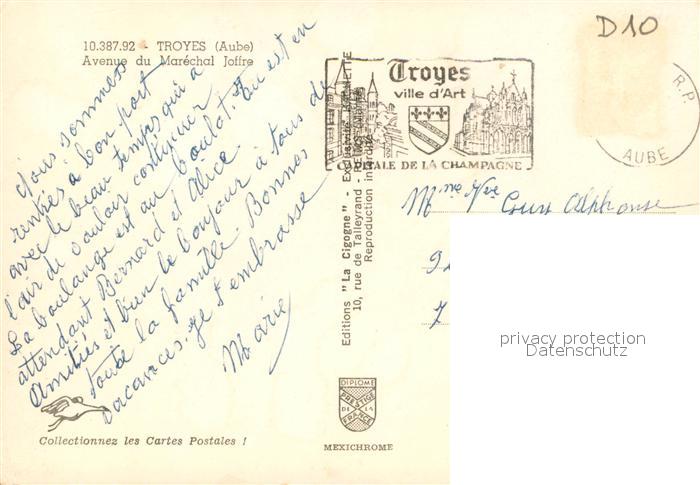 10.387.92 - TROYES (Aube)
Avenue du Maréchal Joffre
Nous sommes
rentrés à bon port
avec le beau temps qui a
l'air de vouloir continuer
La boulange est au boulot. On est en
attendant Bernard et Alice
Amitiés et bien le bonjour à tous de
toute la famille. Bonnes
vacances. Je t'embrasse
Marie
Collectionnez les Cartes Postales !
Editions "La Cigogne" - Exclusivité
10, rue de Talleyrand - REIMS
Reproduction interdite
DIPLOME
PRESTIGE
DE LA
FRANCE
MEXICHROME
Troyes
ville d'Art
CAPITALE DE LA CHAMPAGNE
D10
R.P.
AUBE
Alphonse
privacy protection
Datenschutz